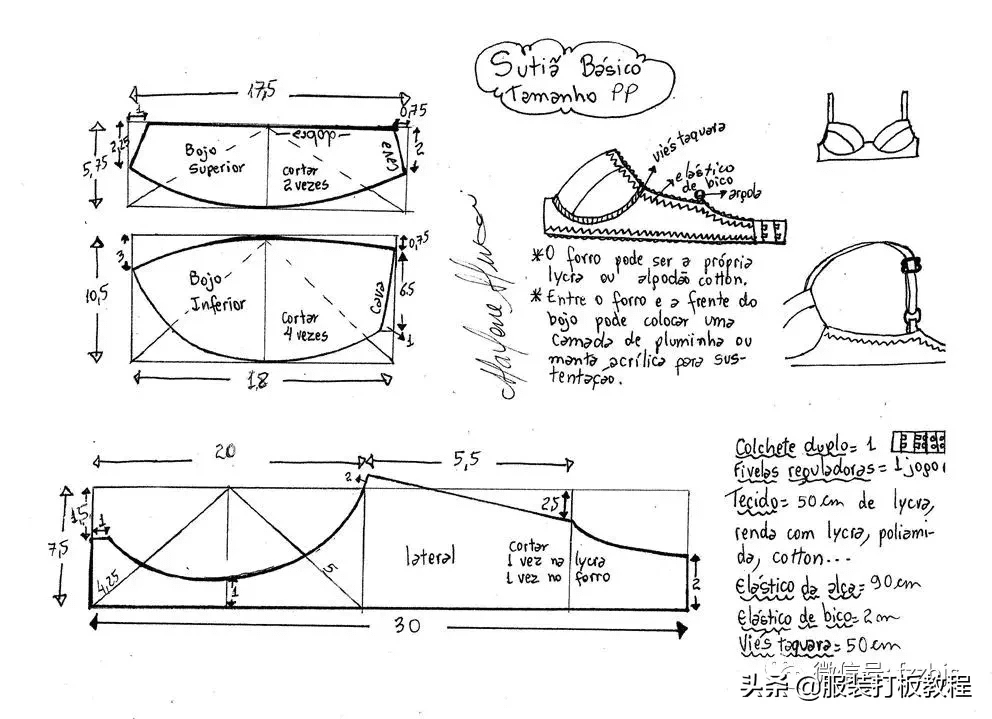 Sutiã Básico
Tamanho PP
17,5
1
0,75
5,75
2,25
2
dobra
Cava
Bojo
Superior
cortar
2 vezes
viés taquara
elástico
de bico
argola
*O forro pode ser a própria
lycra ou alpodão cotton.
*Entre o forro e a frente do
bojo pode colocar uma
camada de pluminha ou
manta acrílica para sus-
tentação.
3
0,75
10,5
6,5
1
Bojo
Inferior
Cava
Cortar
4 vezes
1,8
20
5,5
2
1,5
7,5
1
4,25
1
5
2,5
2
lateral
Cortar
1 vez na lycra
1 vez no forro
30
Colchete duplo= 1
Fivelas reguladoras= 1 jogo
Tecido= 50 cm de lycra,
renda com lycra, poliami-
da, cotton...
Elástico da alça= 90 cm
Elástico de bico= 2 m
Viés taquara= 50 cm
微信号:
头条 @服装打板教程